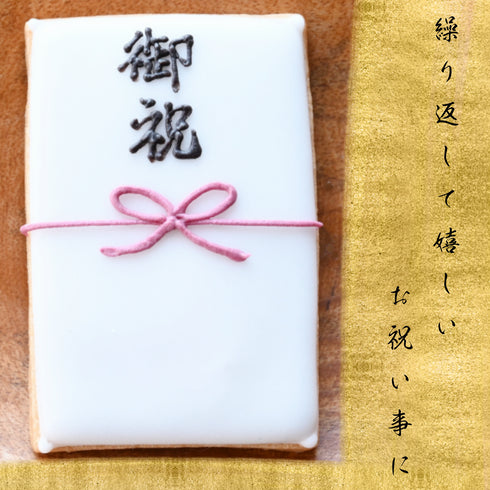 御祝
繰り返して嬉しい
お祝い事に